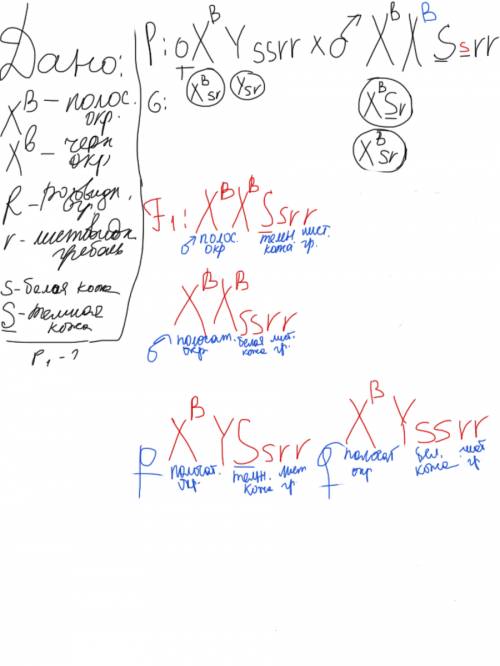 Дано:
X^B – полос. окр.
X^b – черн окр
R – розовидн. гр.
r – листовидн гребень
s - белая кожа
S - темная кожа
P₁ - ?
P: ♀ X^B Y ssrr x ♂ X^B X^B Ssrr
G: X^B sr Y sr X^B Sr
X^B sr
F₁: X^B X^B Ssrr
♂ полос. окр темн. кожа лист. гр.
X^B X^B ssrr
♂ полосат. окр. белая кожа лист. гр.
X^B Y Ssrr
♀ полосат. окр. темн. кожа лист гр.
X^B Y ssrr
♀ полосат окр бел. кожа лист гр.